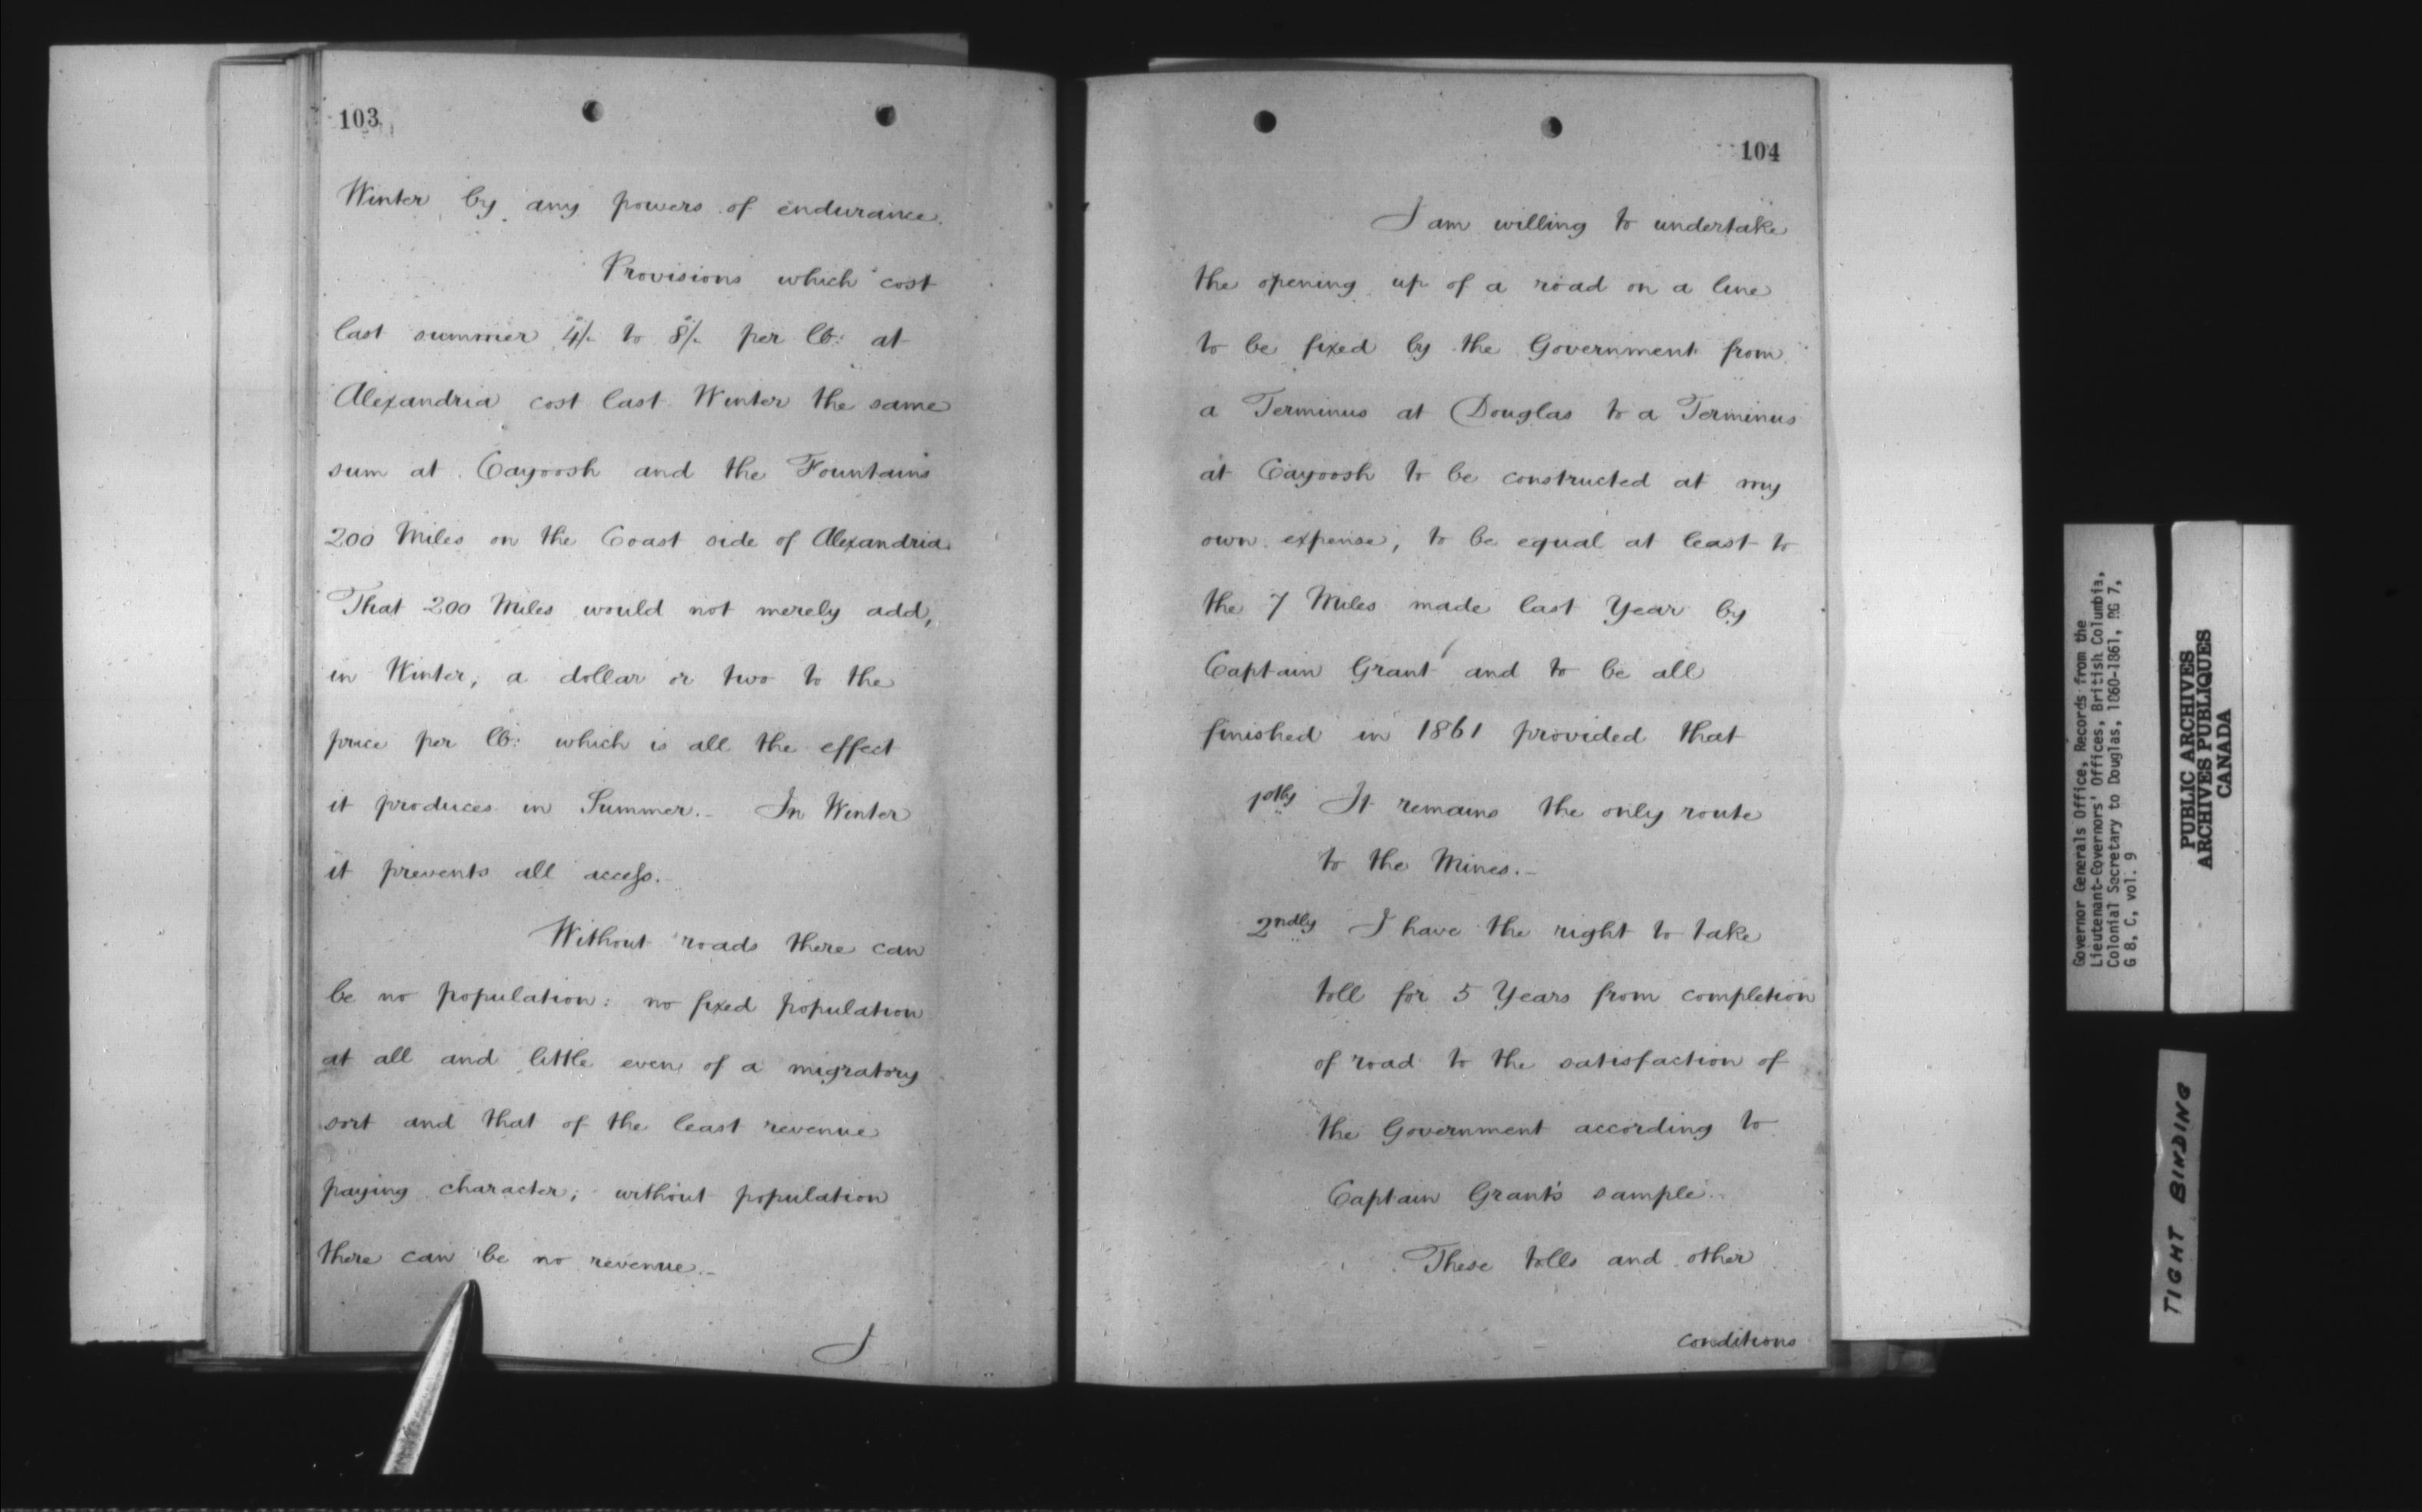 103
Winter by any powers of endurance.
Provisions which cost
last summer 4/- to 8/- per lb: at
Alexandria cost last Winter the same
sum at Cayoosh and the Fountains
200 Miles on the Coast side of Alexandria.
That 200 Miles would not merely add,
in Winter, a dollar or two to the
price per lb: which is all the effect
it produces in Summer.- In Winter
it prevents all access.-
Without roads there can
be no population: no fixed population
at all and little even of a migratory
sort and that of the least revenue
paying character; without population
there can be no revenue.-
I
104
I am willing to undertake
the opening up of a road on a line
to be fixed by the Government from
a Terminus at Douglas to a Terminus
at Cayoosh to be constructed at my
own expense, to be equal at least to
the 7 Miles made last Year by
Captain Grant and to be all
finished in 1861 provided that
1stly It remains the only route
to the Mines.-
2ndly I have the right to take
toll for 5 Years from completion
of road to the satisfaction of
the Government according to
Captain Grant's sample.
These tolls and other
conditions
Governor Generals Office, Records from the
Lieutenant-Governors' Offices, British Columbia,
Colonial Secretary to Douglas, 1860-1861, RG 7,
G 8, C, vol. 9
PUBLIC ARCHIVES
ARCHIVES PUBLIQUES
CANADA
TIGHT BINDING